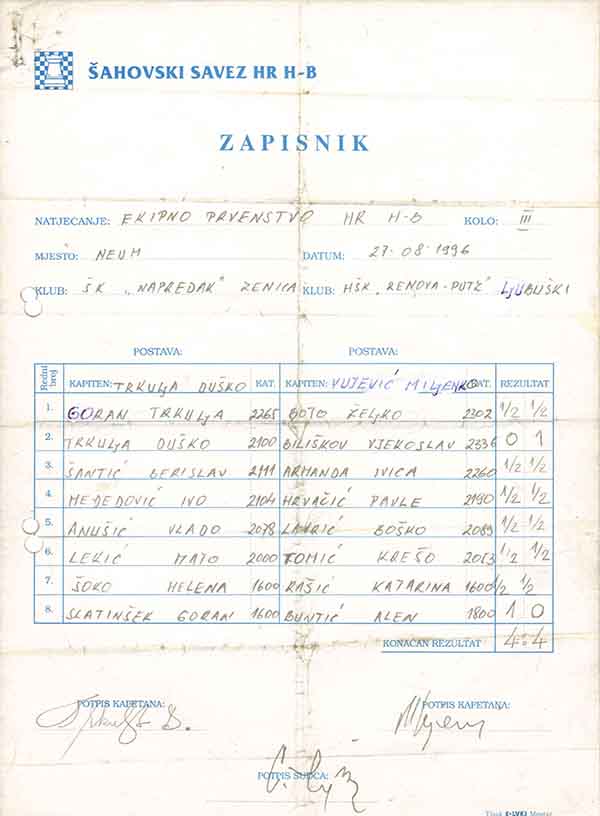 ŠAHOVSKI SAVEZ HR H-B
ZAPISNIK
NATJECANJE: EKIPNO PRVENSTVO HR H-B KOLO: III
MJESTO: NEUM DATUM: 27.08.1996
KLUB: ŠK "NAPREDAK" ZENICA KLUB: HŠK "RENOVA-PUTZ" LJUBUŠKI
POSTAVA: POSTAVA:
Redni broj KAPITEN: TRKULJA DUŠKO KAT. KAPITEN: VUJEVIĆ MILJENKO KAT. REZULTAT
1. GORAN TRKULJA 2265 BOTO ŽELJKO 2302 1/2 1/2
2. TRKULJA DUŠKO 2100 BILIŠKOV VJEKOSLAV 2336 0 1
3. ŠANTIĆ BERISLAV 2111 ARMANDA IVICA 2260 1/2 1/2
4. MEĐEDOVIĆ IVO 2104 HRVAČIĆ PAVLE 2190 1/2 1/2
5. ANUŠIĆ VLADO 2078 LAVRIĆ BOŠKO 2089 1/2 1/2
6. LEKIĆ MATO 2000 TOMIĆ KREŠO 2013 1/2 1/2
7. ŠOKO HELENA 1600 RAŠIĆ KATARINA 1600 1/2 1/2
8. SLATINŠEK GORAN 1600 BUNTIĆ ALEN 1800 1 0
KONAČAN REZULTAT 4:4
POTPIS KAPETANA: POTPIS KAPETANA:
POTPIS SUDCA:
Tisak